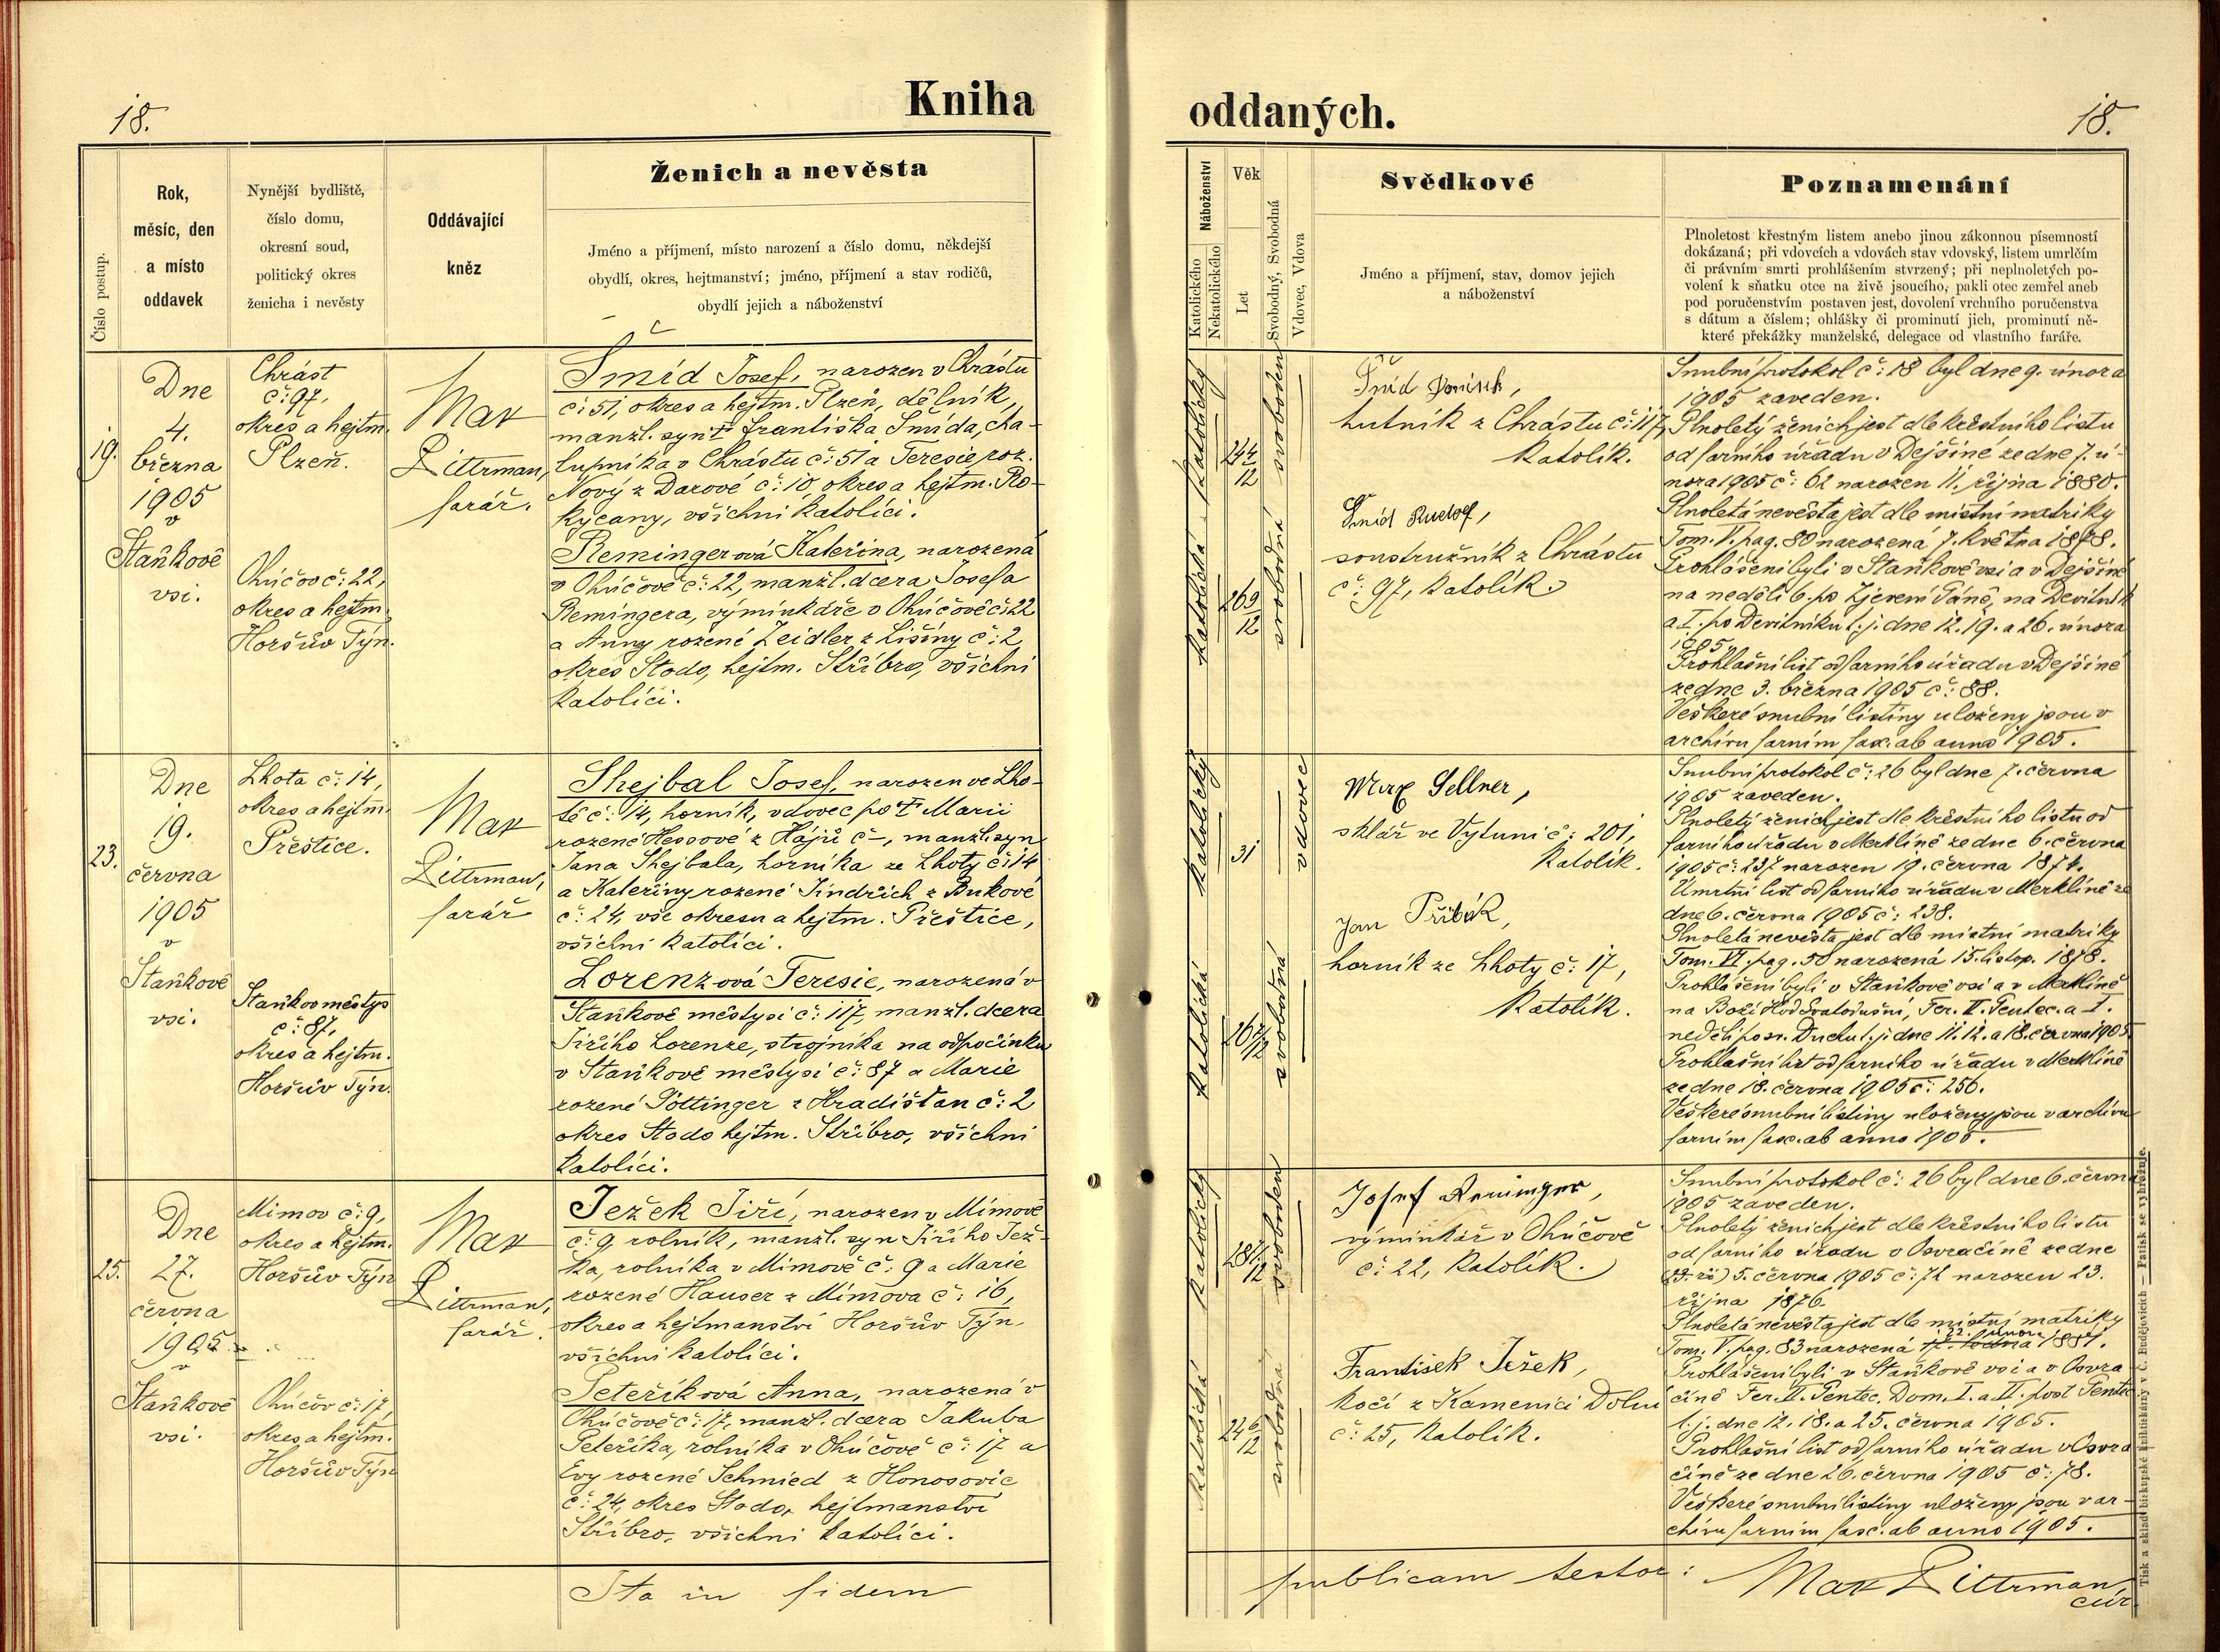 18.
Kniha
Číslo postup.
Rok,
měsíc, den
a místo
oddavek
Nynější bydliště,
číslo domu,
okresní soud,
politický okres
ženicha i nevěsty
Oddávající
kněz
Ženich a nevěsta
Jméno a příjmení, místo narození a číslo domu, někdejší
obydlí, okres, hejtmanství; jméno, příjmení a stav rodičů,
obydlí jejich a náboženství
19.
Dne
4.
března
1905
v
Staňkově
vsi.
Chrást
č: 97,
okres a hejtm.
Plzeň.
Ohúčov č: 22,
okres a hejtm.
Horšův Týn.
Max
Littrman,
farář.
Šmíd Josef, narozen v Chrástu
č: 51, okres a hejtm. Plzeň, dělník,
manžl. syn † Františka Šmída, cha-
lupníka v Chrástu č: 51 a Teresie roz.
Nový z Darové č: 10 okres a hejtm. Ro-
kycany, všichni katolíci.
Remingerová Kateřina, narozená
v Ohúčově č: 22, manžl. dcera Josefa
Remingera, výmínkáře v Ohúčově č: 22
a Anny rozené Zeidler z Lišiny č: 2
okres Stodo, hejtm. Stříbro, všichni
katolíci.
23.
Dne
19.
června
1905
v
Staňkově
vsi.
Lhota č: 14,
okres a hejtm.
Přeštice.
Staňkov městys
č: 87,
okres a hejtm.
Horšův Týn.
Max
Littrman,
farář
Shejbal Josef, narozen ve Lho-
tě č: 14, horník, vdovec po † Marii
rozené Hessové z Hájů č -, manžl. syn
Jana Shejbala, horníka ze Lhoty č: 14
a Kateřiny rozené Jindřich z Bukové
č: 24, vše okresu a hejtm. Přeštice,
všichni katolíci.
Lorenzová Teresie, narozená v
Staňkově městysi č: 117, manžl. dcera
Jiřího Lorenze, strojníka na odpočinku
v Staňkově městysi č: 87 a Marie
rozené Pöttinger z Hradišťan č: 2
okres Stodo hejtm. Stříbro, všichni
katolíci.
25.
Dne
27.
června
1905
v
Staňkově
vsi.
Mimov č: 9,
okres a hejtm.
Horšův Týn
Ohúčov č: 17,
okres a hejtm.
Horšův Týn
Max
Littrman,
farář.
Ježek Jiří, narozen v Mimově
č: 9, rolník, manžl. syn Jiřího Jež-
ka, rolníka v Mimově č: 9 a Marie
rozené Hauser z Mimova č: 16,
okres a hejtmanství Horšův Týn
všichni katolíci.
Peteříková Anna, narozená v
Ohúčově č: 17, manžl. dcera Jakuba
Peteříka, rolníka v Ohúčově č: 17 a
Evy rozené Schmied z Honosovic
č: 24, okres Stodo, hejtmanství
Stříbro, všichni katolíci.
Ita in fidem
oddaných.
18.
Náboženství
Katolického
Nekatolického
Věk
Let
Svobodný, Svobodná
Vdovec, Vdova
Svědkové
Jméno a příjmení, stav, domov jejich
a náboženství
Poznamenání
Plnoletost křestným listem anebo jinou zákonnou písemností
dokázaná; při vdovcích a vdovách stav vdovský, listem umrlčím
či právním smrti prohlášením stvrzený; při neplnoletých po-
volení k sňatku otce na živě jsoucího, pakli otec zemřel aneb
pod poručenstvím postaven jest, dovolení vrchního poručenstva
s dátum a číslem; ohlášky či prominutí jich, prominutí ně-
které překážky manželské, delegace od vlastního faráře.
katolický
24 4/12
svoboden
katolická
26 9/12
svobodná
Šmíd
hutník z Chrástu č: 117,
katolík.
Šmíd Rudolf,
soustružník z Chrástu
č: 97, katolík.
Snubní protokol č: 18 byl dne 9. února
1905 zaveden.
Plnoletý ženich jest dle křestního listu
od farního úřadu v Dejšině ze dne 7. ú-
nora 1905 č: 62 narozen 11. října 1880.
Plnoletá nevěsta jest dle místní matriky
Tom. V. pag. 80 narozená 7. května 1878.
Prohlášeni byli v Staňkově vsi a v Dejšině
na neděli 6. po Zjevení Páně, na Devítník
a I. po Devítníku t. j. dne 12. 19. a 26. února
1905.
Prohlašní list od farního úřadu v Dejšině
ze dne 3. března 1905 č: 88.
Veškeré snubní listiny uloženy jsou v
archivu farním fasc. ab anno 1905.
katolický
31
vdovec
katolická
26 7/12
svobodná
Max Sellner,
sklář ve Vytuni č: 201,
katolík.
Jan Přibák,
horník ze Lhoty č: 17,
katolík.
Snubní protokol č: 26 byl dne 7. června
1905 zaveden.
Plnoletý ženich jest dle křestního listu od
farního úřadu v Merklíně ze dne 6. června
1905 č: 237 narozen 19. června 1874.
Úmrtní list od farního úřadu v Merklíně ze
dne 6. června 1905 č: 238.
Plnoletá nevěsta jest dle místní matriky
Tom. VI. pag. 50 narozená 15. listop. 1878.
Prohlášeni byli v Staňkově vsi a v Merklíně
na Boží Hod Svatodušní, Fer. II. Pentec. a I.
neděli po sv. Duchu t. j. dne 11. 12. a 18. června 1905.
Prohlašní list od farního úřadu v Merklíně
ze dne 18. června 1905 č: 256.
Veškeré snubní listiny uloženy jsou v archivu
farním fasc. ab anno 1905.
katolický
svoboden
katolická
svobodná
Josef Reminger,
výminkář v Ohúčově
č: 22, katolík.
František Ježek,
kočí z Kamenici Dolní
č: 25, katolík.
Snubní protokol č: 26 byl dne 6. června
1905 zaveden.
Plnoletý ženich jest dle křestního listu
od farního úřadu v Osvračíně ze dne
5. června 1905 č: 72 narozen 23.
října 1876.
Plnoletá nevěsta jest dle místní matriky
22. února
Tom. V. pag. 83 narozená 1881.
Prohlášeni byli v Staňkově vsi a v Osvra
číně Fer. II. Pentec. Dom. I. a II. post Pentec
t. j. dne 12. 18. a 25. června 1905.
Prohlašní list od farního úřadu v Osvra
číně ze dne 26. června 1905 č: 78.
Veškeré snubní listiny uloženy jsou v ar-
chivu farním fasc. ab anno 1905.
publicam testor:
Max Littrman,
cur.
Tisk a sklad biskupské knihtiskárny v Č. Budějovicích — Patisk se vyhražuje.